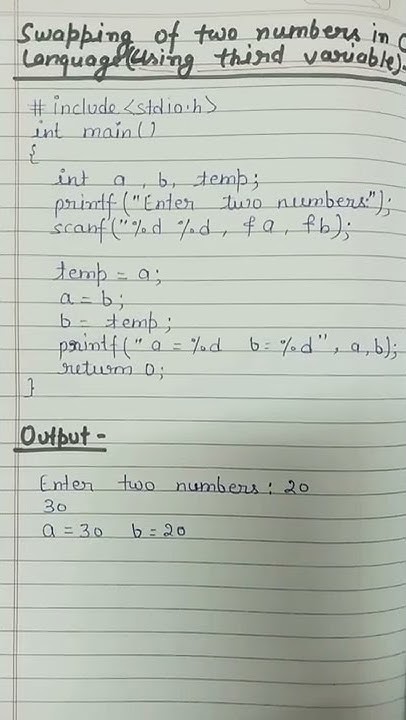 Swapping of two numbers in C
Language(Using third variable).
# include <stdio.h>
int main()
{
int a, b, temp;
printf("Enter two numbers:");
scanf("%d %d, &a, &b);
temp = a;
a = b;
b = temp;
printf(" a = %d b = %d", a,b);
return 0;
}
Output -
Enter two numbers: 20
30
a = 30 b = 20